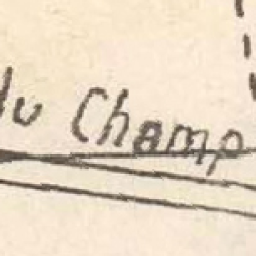 du Champ